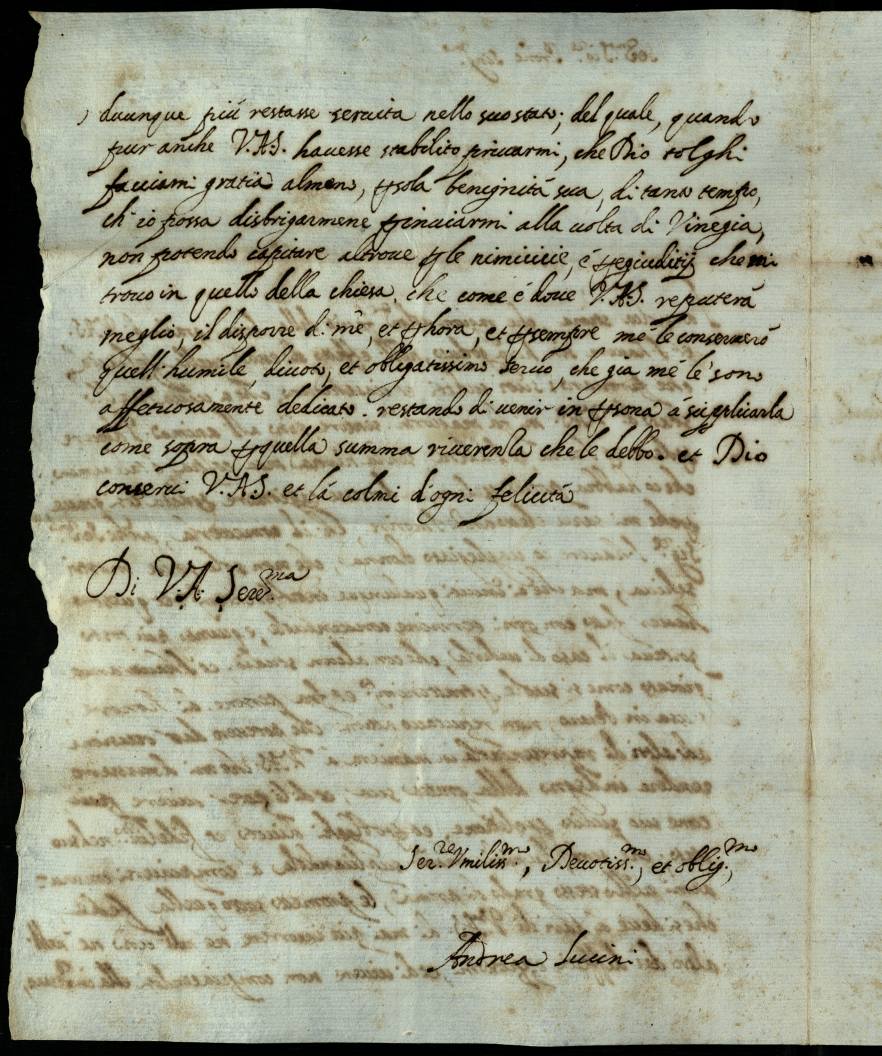 duunque più restasse seruita nello suo stato; del quale, quando
pur anche V.A.S. hauesse stabilito priuarmi, che Dio tolghi
facciami gratia almeno, ꝑ sola benignità sua, di tanto tempo,
ch'io possa disbrigarmene ꝑ inuiarmi alla uolta di Vinegia,
non potendo capitare altroue ꝑ le nimicicie, è ꝑegiuditij che mi
trouo in quello della chiesa. che come è doue V.A.S. reputerà
meglio, il disporre di mè, et ꝑ hora, et ꝑ sempre mè le conseruerò
quell'humile, diuoto, et obligatissimo seruo, che gia mè le son
affettuosamente dedicato. restando di uenir in ꝑsona à supplicarla
come sopra ꝑ quella summa riuerenza che le debbo. et Dio
conserui V.A.S. et là colmi d'ogni felicità
Di V.A. Sere.ma
Ser.re Vmiliss.mo, Deuotiss.mo, et oblig.mo
Andrea Lucini